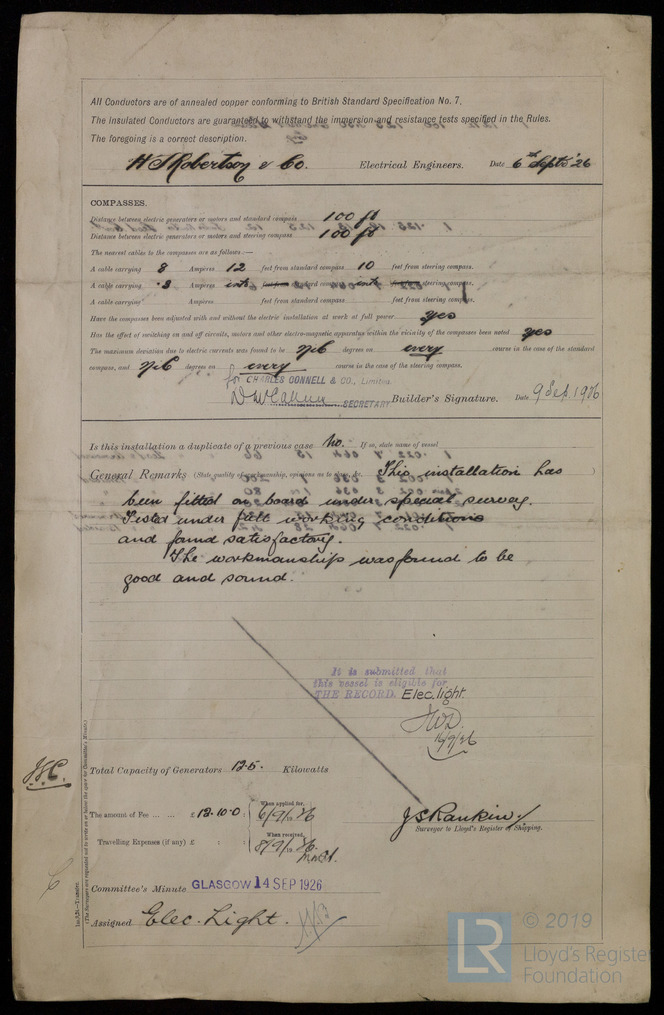 All Conductors are of annealed copper conforming to British Standard Specification No. 7.
The Insulated Conductors are guaranteed to withstand the immersion and resistance tests specified in the Rules.
The foregoing is a correct description.
Robertson & Co. Electrical Engineers. Date 6th Sept '26
COMPASSES.
Distance between electric generators or motors and standard compass 100 ft
Distance between electric generators or motors and steering compass 100 ft
The nearest cables to the compasses are as follows:—
A cable carrying 8 Amperes 12 feet from standard compass 10 feet from steering compass.
A cable carrying .3 Amperes into feet from standard compass into feet from steering compass.
A cable carrying Amperes feet from standard compass feet from steering compass.
Have the compasses been adjusted with and without the electric installation at work at full power yes
Has the effect of switching on and off circuits, motors and other electro-magnetic apparatus within the vicinity of the compasses been noted yes
The maximum deviation due to electric currents was found to be Nil degrees on every course in the case of the standard
compass, and Nil degrees on every course in the case of the steering compass.
for CHARLES CONNELL & CO., Limited.
SECRETARY Builder's Signature. Date 9 Sep. 1926
Is this installation a duplicate of a previous case No. If so, state name of vessel
General Remarks (State quality of workmanship, opinions as to class, &c. This installation has
been fitted on board under special survey.
Tested under full working conditions
and found satisfactory.
The workmanship was found to be
good and sound.
It is submitted that
this vessel is eligible for
THE RECORD. Elec. light.
16/9/26
Total Capacity of Generators 12.5. Kilowatts
The amount of Fee ... ... £ 12.10.0 : When applied for, 6/9/1926
Travelling Expenses (if any) £ : : When received, 8/9/1926
J S Rankin
Surveyor to Lloyd's Register of Shipping.
Committee's Minute GLASGOW 14 SEP 1926
Assigned Elec. Light.
(The Surveyors are requested not to write on or below the space for Committee's Minute.)
© 2019
LR
Lloyd's Register
Foundation